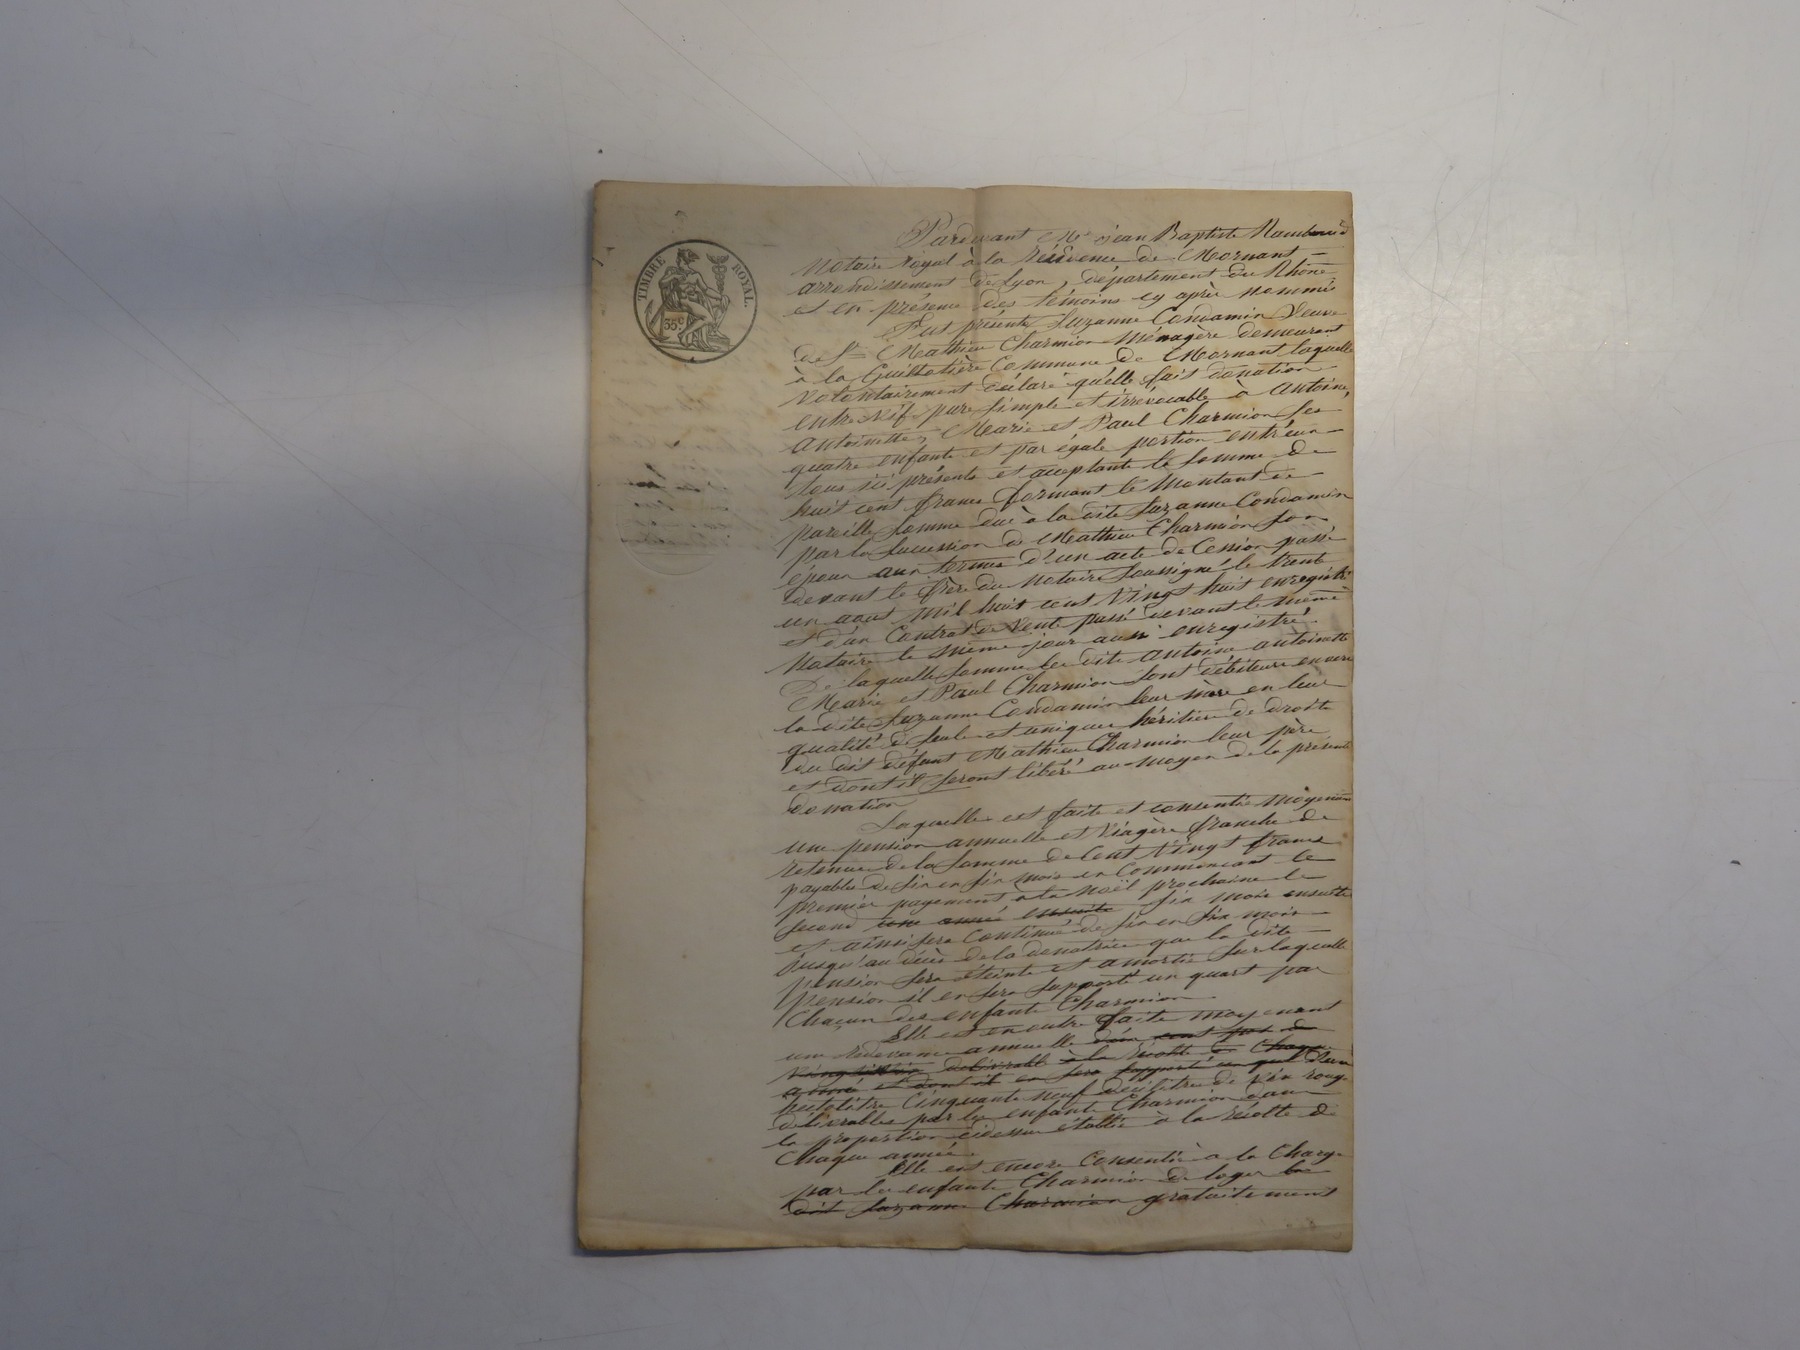 TIMBRE ROYAL.
35.c
Pardevant Me Jean Baptiste
Notaire royal à la résidence de Mornant
arrondissement de Lyon, département du Rhône
et en présence des témoins cy après nommés
Fut présente Suzanne Condamin Veuve
de Sr Mathieu Charmion Ménagère demeurant
à la Guillotière Commune de Mornant laquelle
volontairement déclaré qu'elle fait donation
entre vif pure simple et irrévocable à Antoine,
Antoinette, Marie et Paul Charmion ses
quatre enfants et par égale portion entr'eux
tous ici présents et acceptants la somme de
huit cent francs formant le montant de
pareille somme due à la dite Suzanne Condamin
par la succession de Mathieu Charmion son
époux aux termes d'un acte de Cession passé
devant le frère du Notaire soussigné le trente
un aout mil huit cent vingt huit enregistré
et d'un Contrat de Vente passé devant le même
Notaire le même jour aussi enregistré.
De laquelle somme les dits Antoine antoinette
Marie et Paul Charmion sont débiteurs envers
la dite Suzanne Condamin leur mère en leur
qualité de seuls et uniques héritiers de droits
du dit défunt Mathieu Charmion leur père
et dont ils seront libéré au moyen de la présente
donation
Laquelle est faite et consentie moyennant
une pension annuelle et viagère franche de
retenue de la somme de Cent vingt francs
payables de six en six mois en commencant le
premier payement a la noël prochaine le
second une année ensuite six mois ensuite
et ainsi sera continué de six en six mois
jusqu'au décès de la donatrice que la dite
pension sera éteinte et amortie sur laquelle
pension il en sera supporté un quart par
Chaçun des enfants Charmion.
Elle est en outre faite moyenant
une redevance annuelle
délivrable à la récolte de Chaque
année et dont il en sera supporté un quart
hectolitre Cinquante neuf decilitre de vin rouge
délivrables par les enfants Charmion dans
la proportion cidessus établie à la récolte de
Chaque année.
Elle est encore Consentie à la Charge
par les enfants Charmion de loger la
dite Suzanne Charmion gratuitement